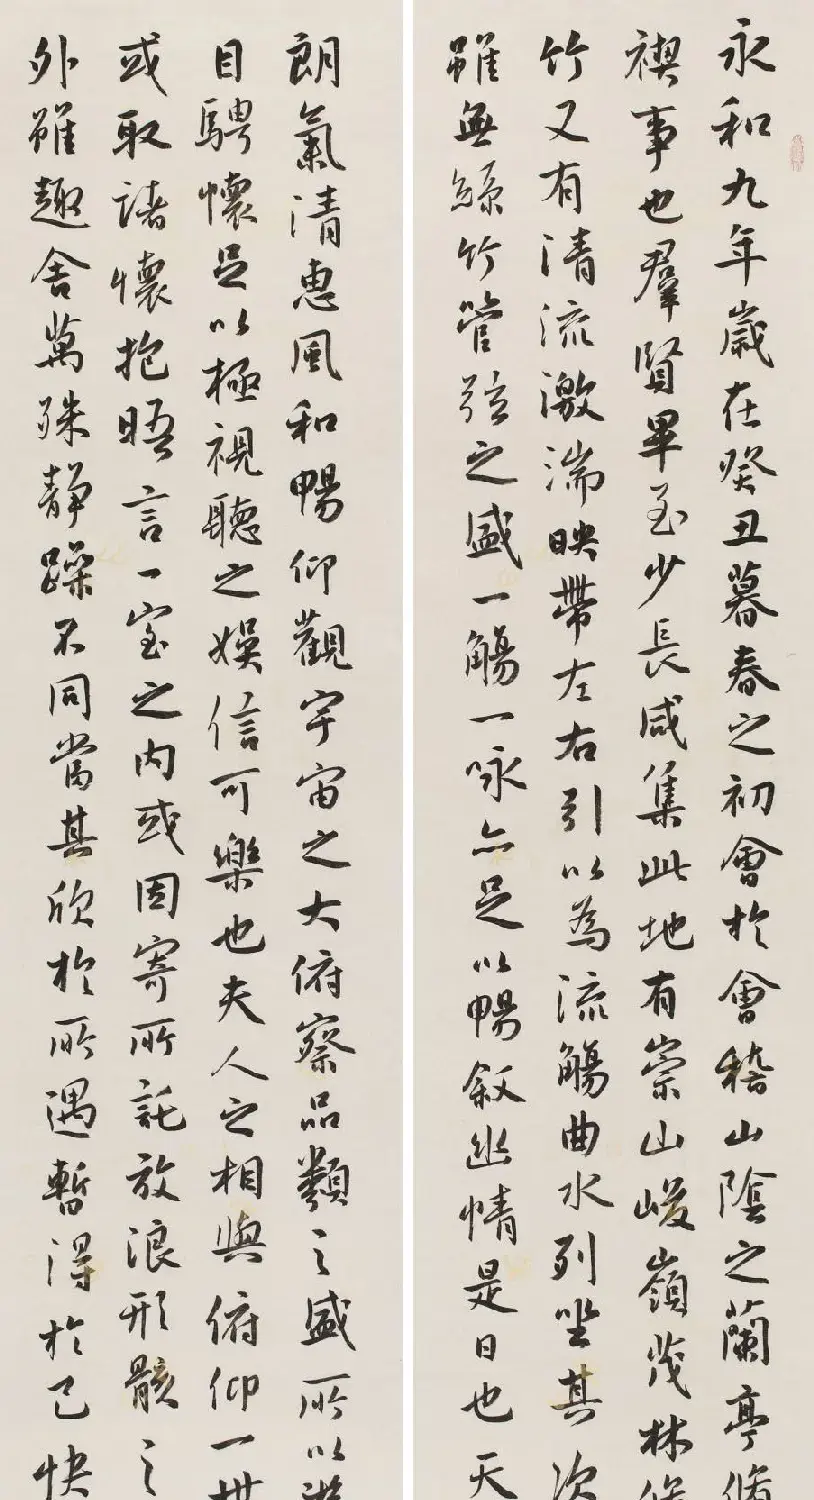 永和九年歲在癸丑暮春之初會於會稽山陰之蘭亭脩
禊事也羣賢畢至少長咸集此地有崇山峻嶺茂林脩
竹又有清流激湍映帶左右引以為流觴曲水列坐其次
雖無絲竹管弦之盛一觴一咏亦足以暢敘幽情是日也天
朗氣清惠風和暢仰觀宇宙之大俯察品類之盛所以遊
目騁懷足以極視聽之娛信可樂也夫人之相與俯仰一世
或取諸懷抱晤言一室之內或因寄所託放浪形骸之
外雖趣舍萬殊靜躁不同當其欣於所遇暫得於己快